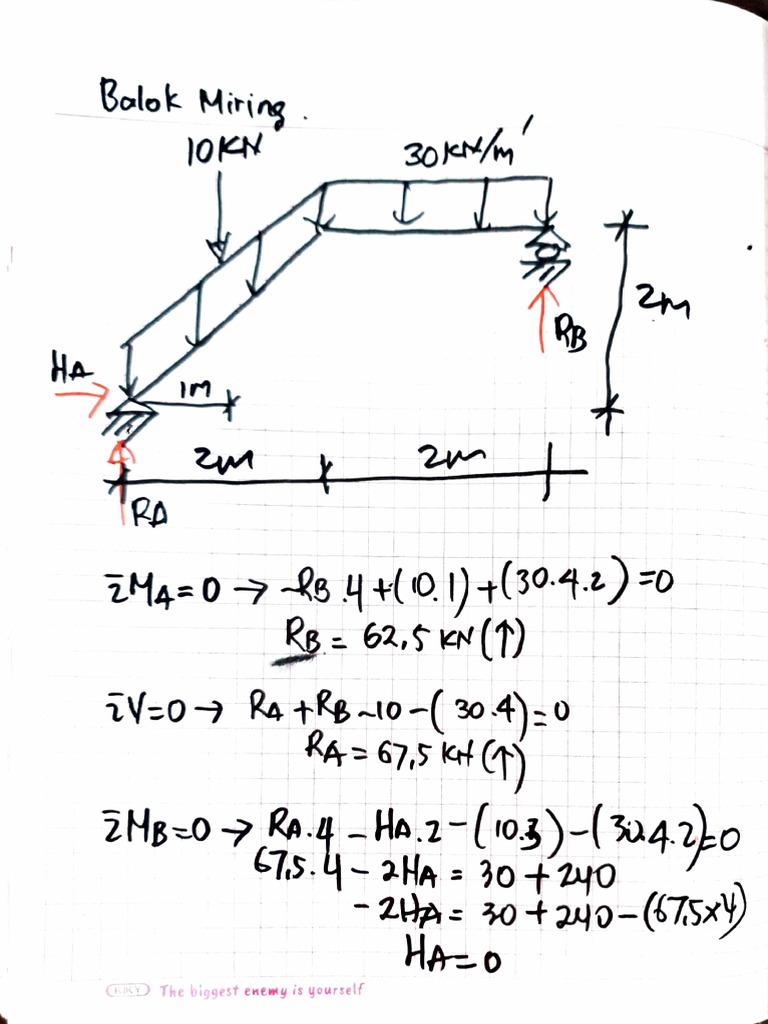 Balok Miring.
10KN
30 KN/m'
HA
1m
RB
2m
2m
2m
RA
ΣMA=0 → -RB.4+(10.1)+(30.4.2)=0
RB = 62,5 KN (↑)
ΣV=0 → RA+RB-10-(30.4)=0
RA=67,5 KN (↑)
ΣMB=0 → RA.4 - HA.2-(10.3)-(30.4.2)=0
67,5.4 - 2HA = 30 + 240
-2HA = 30 + 240-(67,5x4)
HA=0
KIKY The biggest enemy is yourself